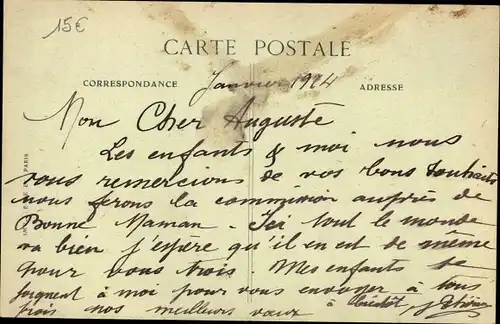 15€
CARTE POSTALE
CORRESPONDANCE
Janvier 1914
ADRESSE
Mon Cher Auguste
Les enfants & moi nous
vous remercions de vos bons souhaits
nous ferons la commission auprès de
Bonne Maman - Ici tout le monde
va bien j'espère qu'il en est de même
pour vous trois. Mes enfants se
joignent à moi pour vous envoyer à tous
trois nos meilleurs vœux à bientôt
PARIS